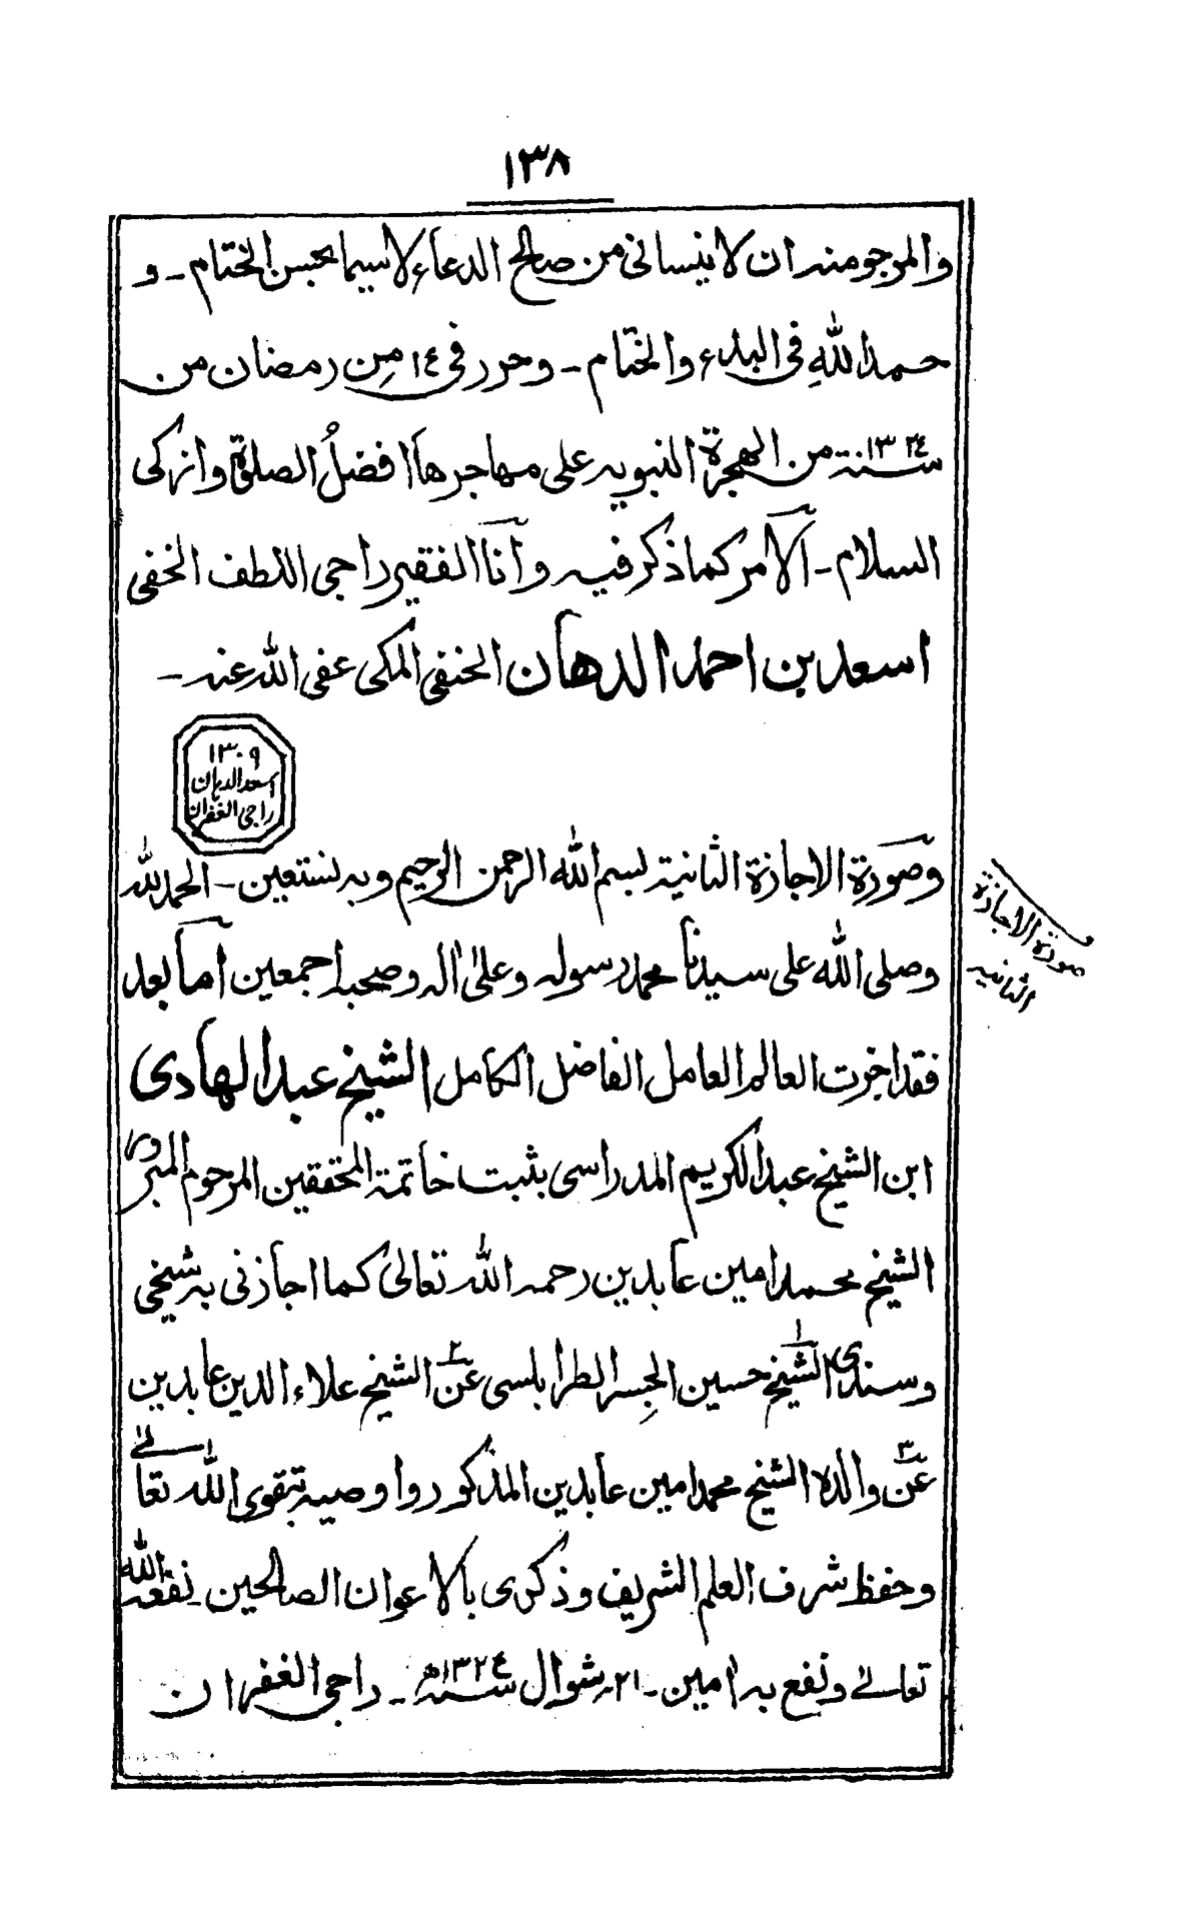 ١٣٨
والمرجو منه ان لا ينساني من صالح الدعاء لاسيما بحسن الختام ـ و
حمدا للهِ في البدء والختام ـ وحرر في ١٤ مِن رمضان من
سنة ١٣٢٤ من الهجرة النبويه على مهاجرها افضلُ الصلوة وازكى
السلام ـ الامر كما ذكر فيه وانا الفقير راجي اللطف الخفى
اسعد بن احمد الدهان الحنفي المكى عفى الله عنه ـ
١٣٠٩
اسعد الدهان
راجي الغفران
وصورة الاجازة الثانية بسم الله الرحمن الرحيم وبه نستعين ـ الحمد لله
صورة الاجازة
الثانيه
وصلى الله على سيدنا محمد رسوله وعلىٰ اٰله وصحبه اجمعين اما بعد
فقد اجزت العالم العامل الفاضل الكامل الشيخ عبد الهادى
ابن الشيخ عبد الكريم المدراسى بثبت خاتمة المحققين المرحوم المبرور
الشيخ محمد امين عابدين رحمه الله تعالىٰ كما اجازنى به شيخي
وسندى الشيخ١ حسين الجِسر الطرابلسى عن٢ الشيخ علاء الدين عابدين
عن٣ والده الشيخ محمد امين عابدين المذكور واوصيه بتقوى الله تعالےٰ
وحفظ شرف العلم الشريف وذكرى بالاعوان الصالحين ـ نفعه الله
تعالےٰ ونفع به اٰمين ـ ٢١ شوال سنة ١٣٢٤ھ ـ راجى الغفران